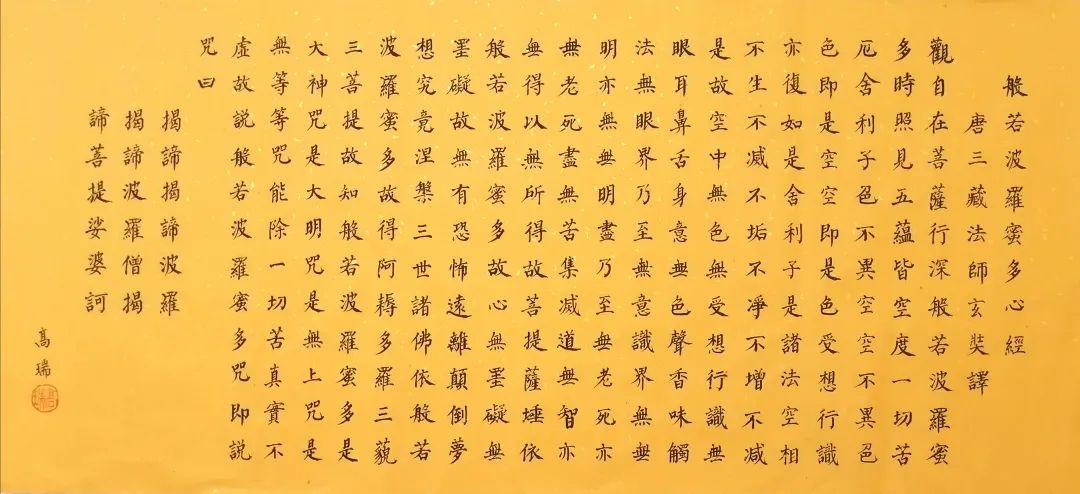 般若波羅蜜多心經
唐三藏法師玄奘譯
觀自在菩薩行深般若波羅蜜
多時照見五蘊皆空度一切苦
厄舍利子色不異空空不異色
色即是空空即是色受想行識
亦復如是舍利子是諸法空相
不生不滅不垢不淨不增不減
是故空中無色無受想行識無
眼耳鼻舌身意無色聲香味觸
法無眼界乃至無意識界無無
明亦無無明盡乃至無老死亦
無老死盡無苦集滅道無智亦
無得以無所得故菩提薩埵依
般若波羅蜜多故心無罣礙無
罣礙故無有恐怖遠離顛倒夢
想究竟涅槃三世諸佛依般若
波羅蜜多故得阿耨多羅三藐
三菩提故知般若波羅蜜多是
大神咒是大明咒是無上咒是
無等等咒能除一切苦真實不
虛故説般若波羅蜜多咒即説
咒曰
揭諦揭諦波羅
揭諦波羅僧揭
諦菩提娑婆訶
高瑞